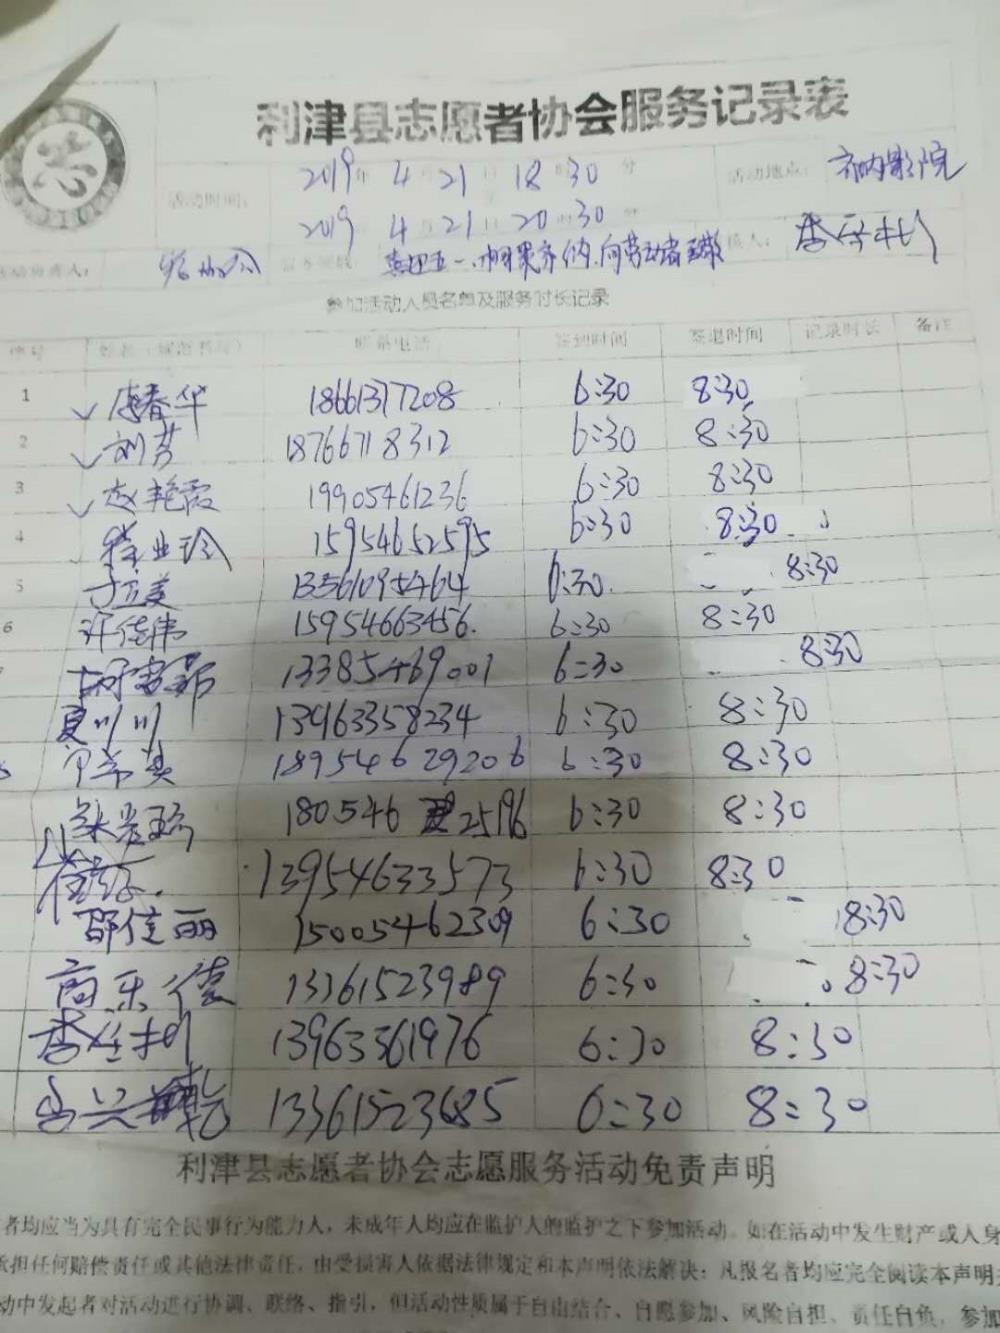 利津县志愿者协会服务记录表
志
活动时间: 2019年 4月21日 18时30分 活动地点: 齐纳影院
至
2019年 4月21日 20时30分
活动负责人:
喜迎五一、相聚齐纳、向劳动者致敬 人: 李
参加活动人员名单及服务时长记录
序号 联系电话 签到时间 签退时间 记录时长 备注
1 李春华 18661377208 6:30 8:30
2 刘芳 18766718312 6:30 8:30
3 赵艳霞 19905461236 6:30 8:30
4 业玲 15954652595 6:30 8:30
5 于立美 13561095464 6:30 8:30
6 许佳伟 15954663456 6:30 8:30
13385469001 6:30 8:30
夏川川 13963358234 6:30 8:30
18954629206 6:30 8:30
180546 25196 6:30 8:30
13954633573 6:30 8:30
邵佳丽 15005462309 6:30 8:30
商乐 13361523989 6:30 8:30
李 13963361976 6:30 8:30
兴乾 13361523685 6:30 8:30
利津县志愿者协会志愿服务活动免责声明
者均应当为具有完全民事行为能力人，未成年人均应在监护人的监护之下参加活动。如在活动中发生财产或人身
承担任何赔偿责任或其他法律责任，由受损害人依据法律规定和本声明依法解决；凡报名者均应完全阅读本声明
动中发起者对活动进行协调、联络、指引，但活动性质属于自由结合、自愿参加、风险自担、责任自负，参加